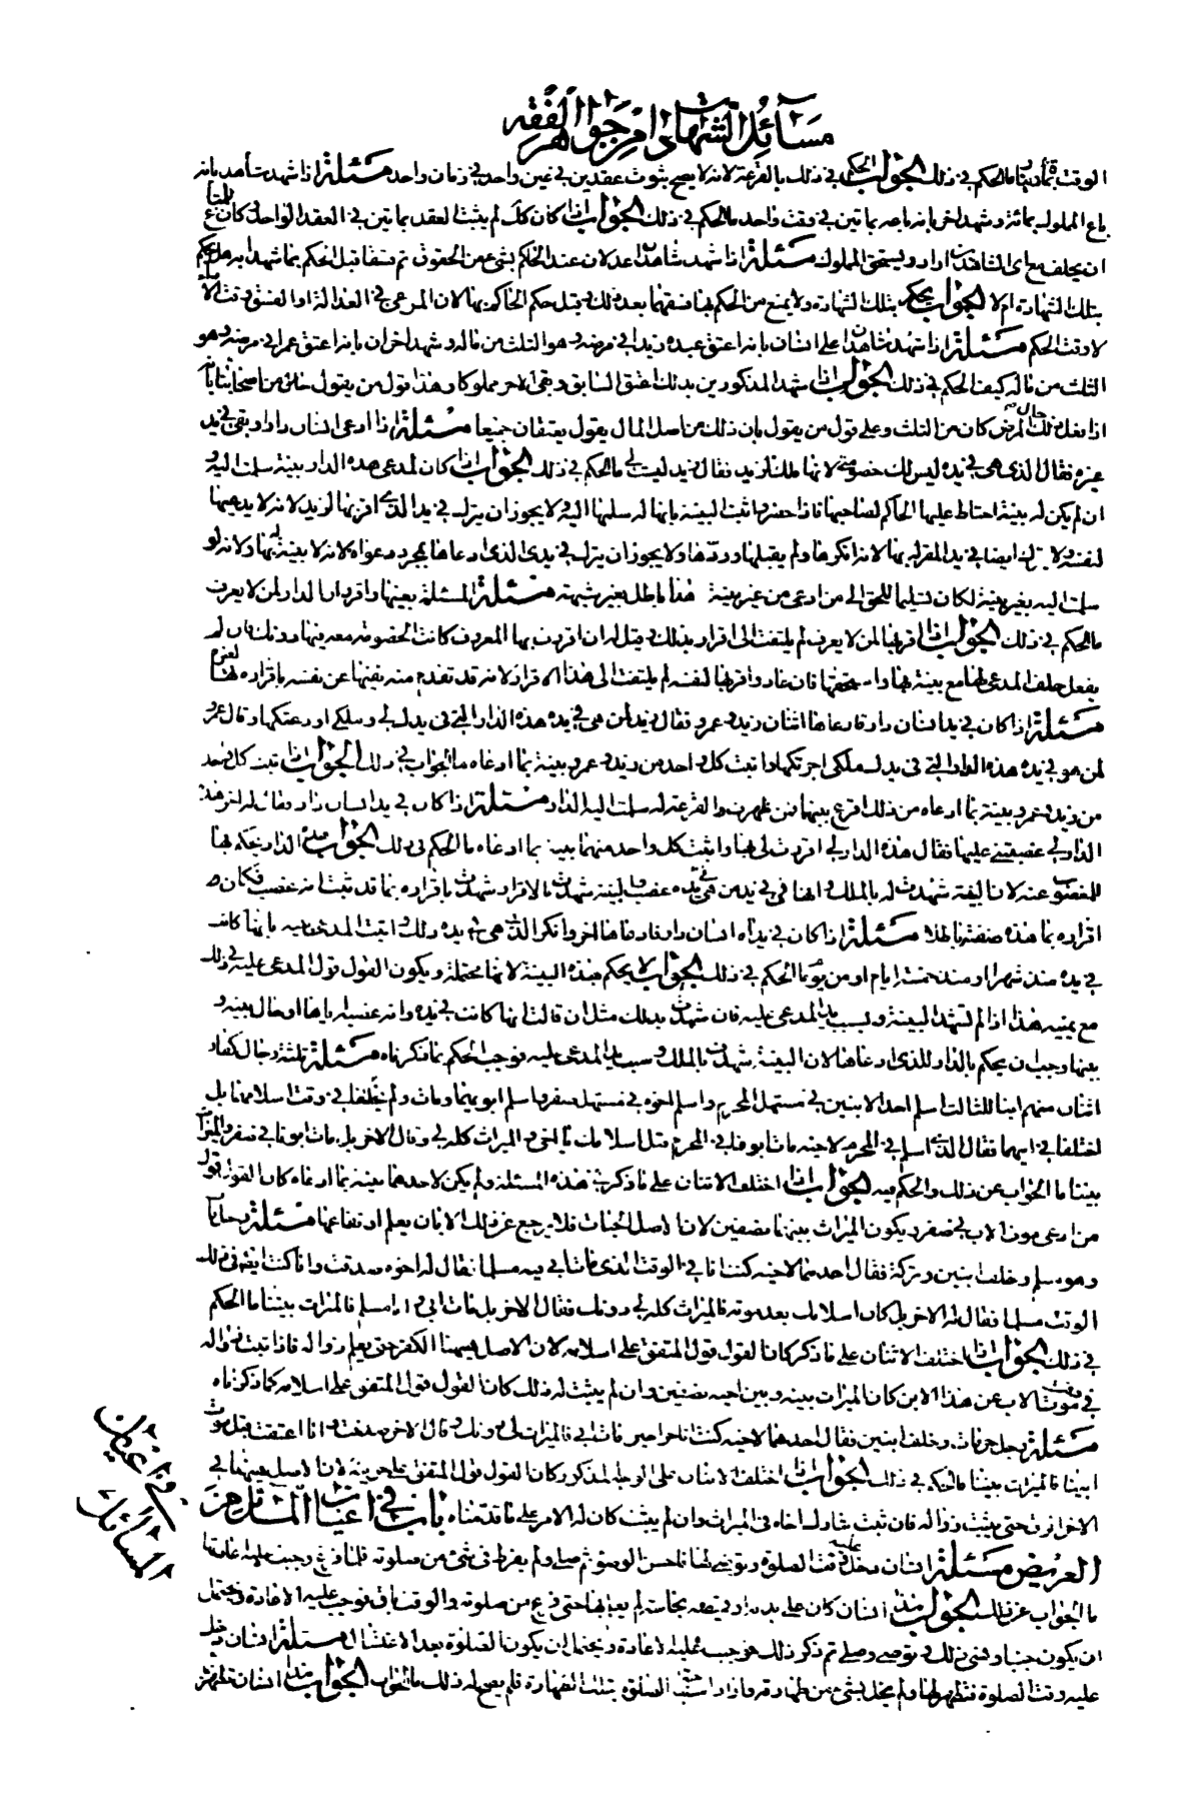 مسائل الشهادات من جواهر الفقه
الوقت ما الحكم في ذلك الجواب الحكم في ذلك بالقرعة لانه لا يصح ثبوت عقدين في عين واحد في زمان واحد مسئلة اذا شهد شاهد بانه
باع المملوك بمائة وشهد اخر بانه باعه بمائتين في وقت واحد ما الحكم في ذلك الجواب اذا كان كذلك لم يثبت العقد بمائتين في العقد الواحد وكان
ان يحلف مع اى الشاهدين اراد ويستحق المملوك مسئلة اذا شهد شاهدان عدلان عند الحاكم بشئ من الحقوق ثم فسقا قبل الحكم بما شهدا به هل يحكم
بتلك الشهادة ام لا الجواب يحكم بتلك الشهادة ولا يمنع من الحكم بها فسقهما بعد ذلك وقبل حكم الحاكم بها لان المرعى في العدالة او الفسق وقت الاداء
لا وقت الحكم مسئلة اذا شهد شاهدان على انسان بانه اعتق عبده زيدا في مرضه وهو الثلث من ماله وشهد اخران بانه اعتق عمرا في مرضه وهو
الثلث من ماله كيف الحكم في ذلك الجواب اذا شهد المذكورين بذلك اعتق السابق وبقى الاخر مملوكا وهذا قول من يقول من اصحابنا بان
اذا فعل ذلك حال المرض كان من الثلث وعلى قول من يقول بان ذلك من اصل المال يقول يعتقان جميعا مسئلة اذا ادعى انسان دارا وهي في يد
غيره فقال الذى هي في يده ليس لك خصومتي لانها ملك لزيد فقال زيد ليست لي ما الحكم في ذلك الجواب اذا كان لمدعى هذه الدار بينة سلمت اليه و
ان لم يكن له بينة احتاط عليها الحاكم لصاحبها فاذا حضر واثبت البينة بانها له سلمها اليه ولا يجوز ان يترك في يد الذى اقر بها لزيد لانه لا يدعيها
لنفسه ولا يترك ايضا في يد المقر له بها لانه انكرها ولم يقبلها وردها ولا يجوز ان يترك في يدى الذى ادعاها بمجرد دعواه لانه لا بينة له بها ولانه لو
سلمت اليه بغير بينة لكان تسليما للحق الى من ادعى من غير بينة هذا باطل بغير شبهة مسئلة المسئلة بعينها واقر بالدار لمن لا يعرف
ما الحكم في ذلك الجواب اذا اقر بها لمن لا يعرف لم يلتفت الى اقراره بذلك وقيل له ان اقررت بها المعروف كانت الخصومة معه فيها دونك فان لم
يفعل حلف المدعى لها مع بينة بها واستحقها فان عاد واقر بها لنفسه لم يلتفت الى هذا الاقرار لانه قد تقدم منه نفيها عن نفسه باقراره لها لغيره
مسئلة اذا كان في يد انسان دار فادعاها اثنان زيد وعمرو فقال زيد لمن هي في يده هذه الدار التي في يدك لي وملكي اودعتكها وقال عمرو
لمن هو في يده هذه الدار التي في يدك ملكي اجرتكها واثبت كل واحد من زيد وعمرو بينة بما ادعاه ما الجواب في ذلك الجواب اذا ثبت كل واحد
من زيد وعمرو بينة بما ادعاه من ذلك اقرع بينهما فمن ظهرت القرعة له سلمت اليه الدار مسئلة اذا كان في يد انسان دار وقال له اخر هذه
الدار لي غصبتني عليها فقال هذه الدار لي اقررت لي بها واثبت كل واحد منهما بينة بما ادعاه ما الحكم في ذلك الجواب هذه الدار يحكم بها
للمغصوب عنه لان البينة شهدت له بالملك وانها في يد من هي في يده غصب والبينة شهدت بالاقرار شهدت باقراره بما قد ثبت انه غصب فكان
اقراره بما هذه صفته باطلا مسئلة اذا كان في يد انسان دار فادعاها اخر وانكر الذى هي في يده ذلك واثبت المدعى بينة بانها كانت
في يده منذ شهر او منذ خمسة ايام او من يومنا ما الحكم في ذلك الجواب لا يحكم بهذه البينة لانها محتملة ويكون القول قول المدعى عليه في ذلك
مع يمينه هذا اذا لم تشهد البينة وبسبب يد المدعى عليه فان شهدت بذلك مثل ان قالت انها كانت في يده وانه غصبه اياها او حال بينه و
بينها وجب ان يحكم بالدار للذى ادعاها لان البينة شهدت بالملك وسبب يد المدعى عليه فوجب الحكم بما ذكرناه مسئلة ثلثة رجال كفار
اثنان منهم ابنا للثالث اسلم احد الابنين في مستهل المحرم واسلم اخوه في مستهل صفر واسلم ابوهما ومات ولم يختلفا في وقت اسلامهما بل
اختلفا في ابيهما فقال الذى اسلم في المحرم لاخيه مات ابونا في المحرم قبل اسلامك يا اخي والميراث كله لي وقال الاخر بل مات ابونا في صفر والميراث
بيننا ما الجواب عن ذلك والحكم فيه الجواب اذا اختلف الاثنان على ما ذكر في هذه المسئلة ولم يكن لاحدهما بينة بما ادعاه كان القول قول
من ادعى موت الاب في صفر ويكون الميراث بينهما نصفين لان الاصل الحيات فلا يرجع عن ذلك الا بان يعلم ارتفاعها مسئلة رجل مات
وهو مسلم وخلف ابنين وتركة فقال احدهما لاخيه كنت انا في الوقت الذى مات ابي فيه مسلما فقال له اخوه صدقت وانا كنت ايضا في ذلك
الوقت مسلما فقال له الاخر بل كان اسلامك بعد موته فالميراث كله لي دونك فقال الاخر بل مات ابي وانا مسلم فالميراث بيننا ما الحكم
في ذلك الجواب اذا اختلف الاثنان على ما ذكر كان القول قول المتفق على اسلامه لان الاصل الكفر حتى يعلم زواله فاذا ثبت زواله
في وقت موت الاب عن هذا الابن كان الميراث بينه وبين اخيه نصفين وان لم يثبت له ذلك كان القول قول المتفق على اسلامه كما ذكرناه
مسئلة رجل حر مات وخلف ابنين فقال احدهما لاخيه كنت انا حرا حين مات ابي فالميراث لي دونك وقال الاخر صدقت وانا اعتقت قبل موت
ابينا فالميراث بيننا ما الحكم في ذلك الجواب اذا اختلف الاثنان على الوجه المذكور كان القول قول المتفق على حريته لان الاصل
الاخر الرق حتى يثبت زواله فان ثبت شارك اخاه في الميراث وان لم يثبت كان له الامر على ما قدمناه باب في اعيان المسائل من
العريض مسئلة انسان دخل عليه وقت الصلوة وتوضى لها فاحسن الوضوء ثم صلى ولم يفرط في شئ من صلوته فلما فرغ وجبت عليه اعادتها
ما الجواب عن ذلك الجواب هذا انسان كان على بدنه او قميصه نجاسة لم يعلم بها حتى فرغ من صلوته والوقت باق فوجب عليه الاعادة ويحتمل
ان يكون جنبا ونسى ذلك وتوضى وصلى ثم ذكر ذلك فوجب عليه الاعادة ويحتمل ان يكون الصلوة بعد الاغتسال مسئلة انسان دخل
عليه وقت الصلوة فتطهر لها ولم يخل بشئ من طهارته فاراد استباحة الصلوة بتلك الطهارة فلم يصح له ذلك ما الجواب الجواب هذا انسان تطهر
في اعيان
المسائل